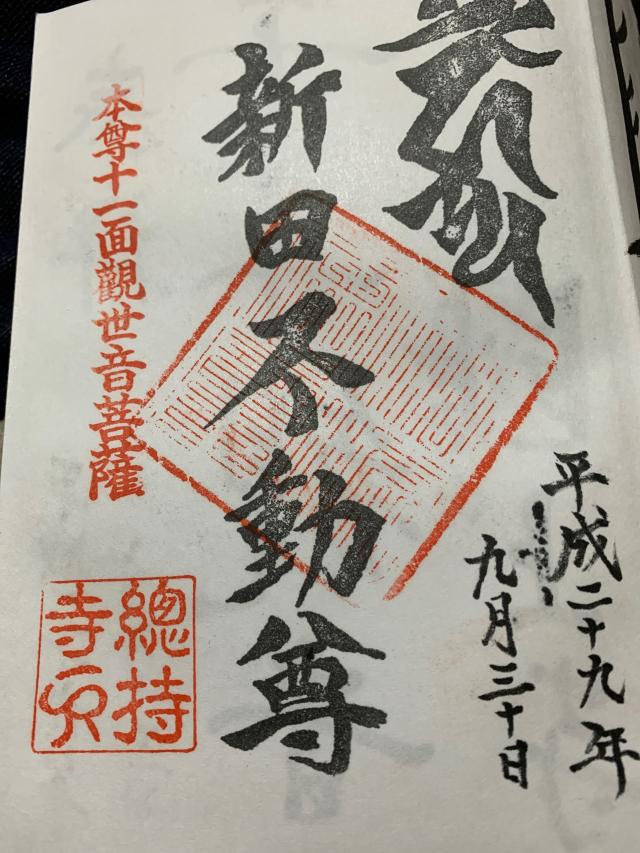 奉拝
平成二十九年
九月三十日
新田不動尊
本尊十一面觀世音菩薩
總持
寺印